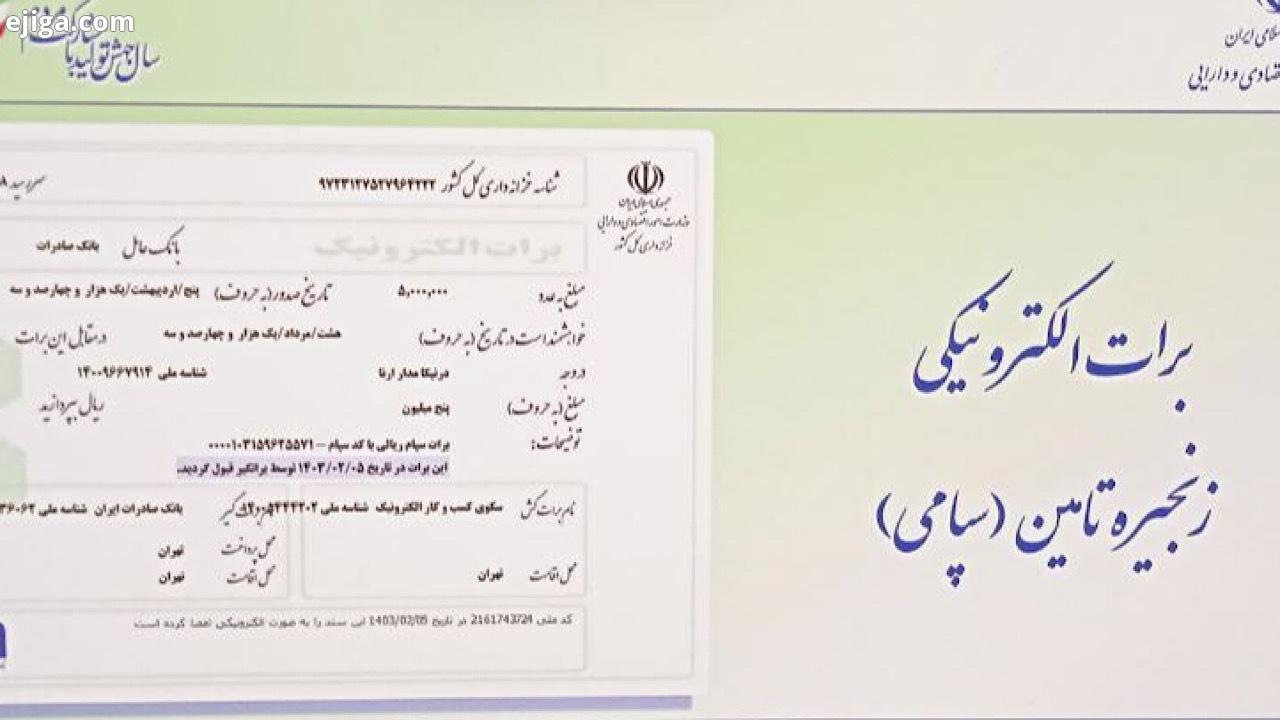 ejiga.com
سال جهش تولید با مشارکت مردم
اسلامی ایران
اقتصادی و دارایی
برات الکترونیکی
زنجیره تامین (سپامی)
جمهوری اسلامی ایران
وزارت امور اقتصادی و دارایی
خزانه داری کل کشور
شناسه خزانه داری کل کشور ۹۷۲۳۱۲۷۵۲۷۹۶۴۲۲۲ سررسید
برات الکترونیک بانک عامل بانک صادرات
مبلغ به عدد ۵,۰۰۰,۰۰۰ تاریخ صدور(به حروف) پنج/اردیبهشت/یک هزار و چهارصد و سه
خواهشمند است در تاریخ (به حروف) هشت/مرداد/یک هزار و چهارصد و سه در مقابل این برات
در وجه درنیکا مدار ارنا شناسه ملی ۱۴۰۰۹۶۶۷۹۱۴
مبلغ (به حروف) پنج میلیون ریال بپردازید
توضیحات: برات سپام ریالی با کد سپام – ۰۰۰۰۱۰۳۱۵۹۶۲۵۵۷۱
این برات در تاریخ ۱۴۰۳/۰۲/۰۵ توسط براتگیر قبول گردید.
نام برات کش سکوی کسب و کار الکترونیک شناسه ملی
بانک صادرات ایران شناسه ملی
محل پرداخت تهران
محل اقامت تهران محل اقامت تهران
کد ملی 2161743724 در تاریخ 1403/02/05 این سند را به صورت الکترونیکی امضا کرده است